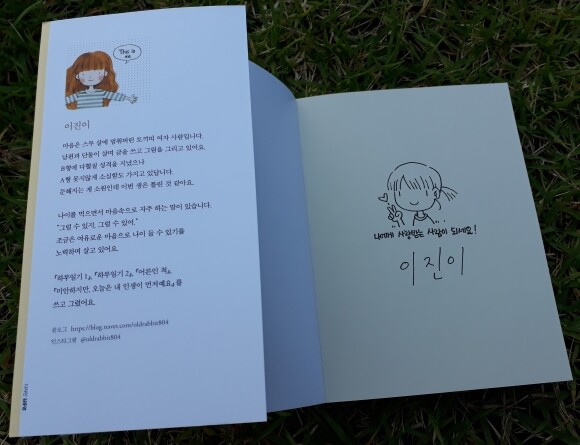 This is me
이진이
마음은 스무 살에 멈춰버린 토끼띠 여자 사람입니다.
남편과 단둘이 살며 글을 쓰고 그림을 그리고 있어요.
B형에 다혈질 성격을 지녔으나
A형 못지않게 소심함도 가지고 있답니다.
둔해지는 게 소원인데 이번 생은 틀린 것 같아요.
나이를 먹으면서 마음속으로 자주 하는 말이 있습니다.
"그럴 수 있지, 그럴 수 있어."
조금은 여유로운 마음으로 나이 들 수 있기를
노력하며 살고 있어요.
『하루일기 1』, 『하루일기 2』, 『어른인 척』,
『미안하지만, 오늘은 내 인생이 먼저예요』를
쓰고 그렸어요.
블로그 https://blog.naver.com/oldrabbit804
인스타그램 @oldrabbit804
나에게 사랑받는 사람이 되세요!
이진이